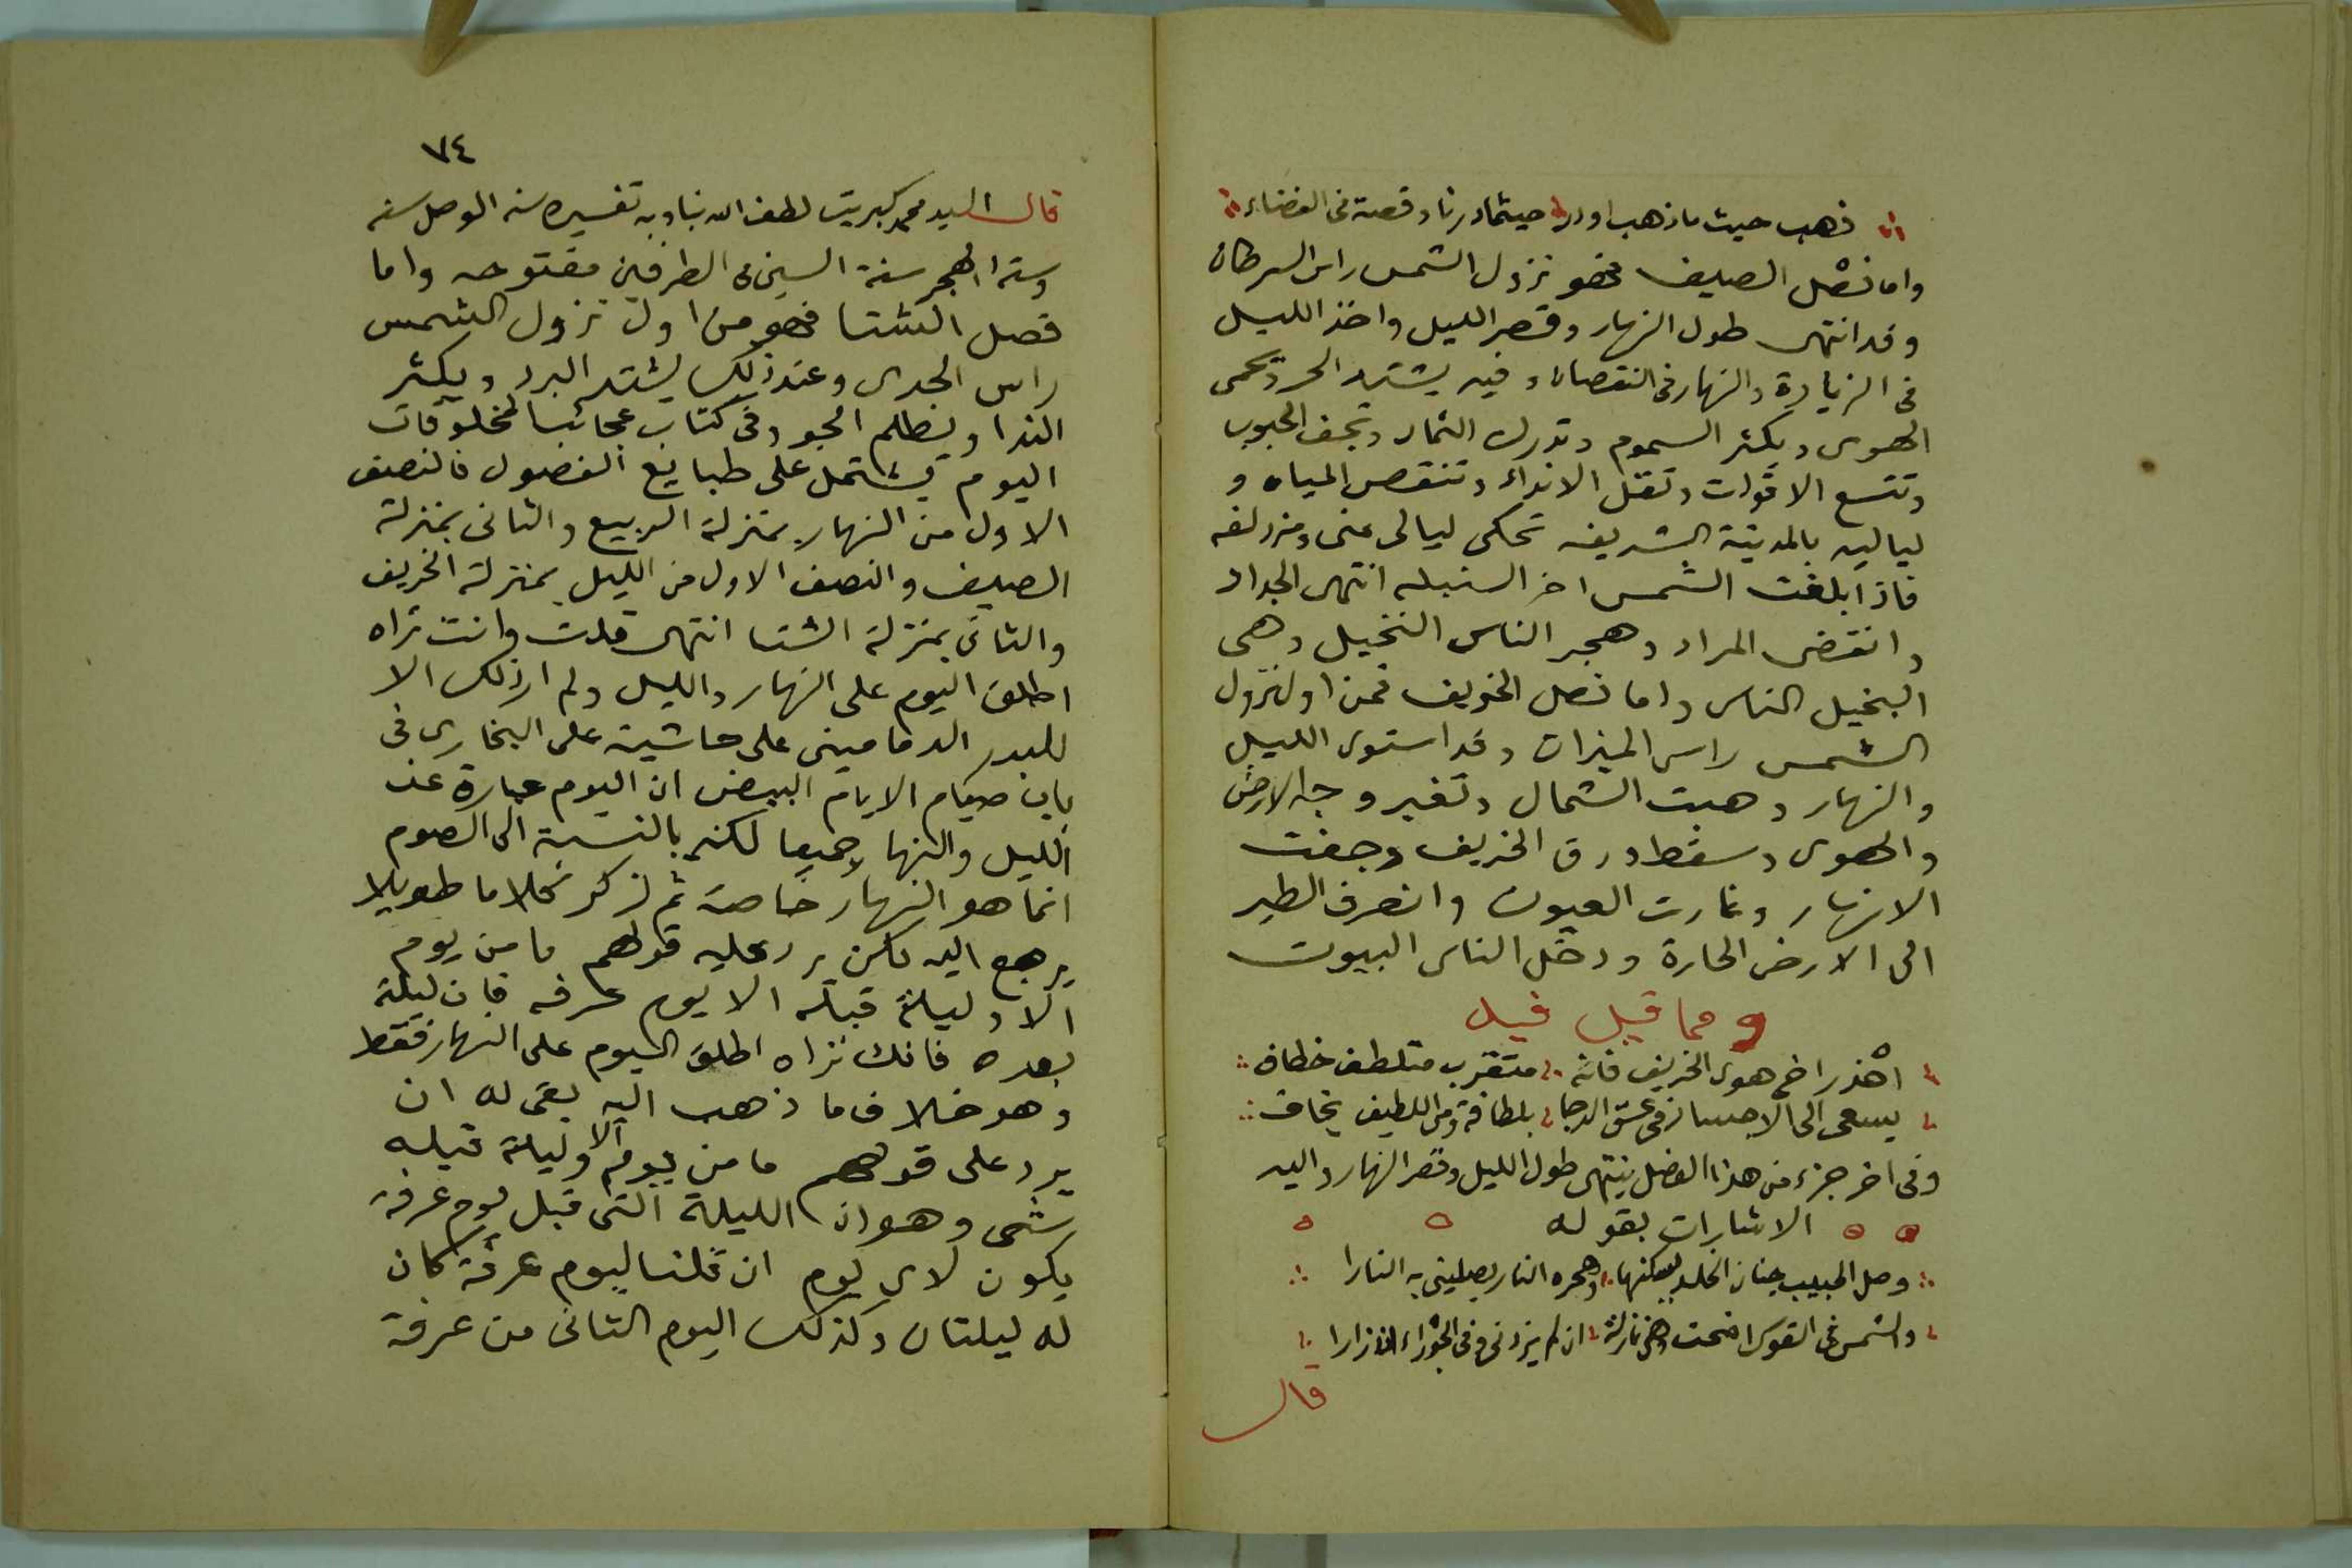 فذهب حيث ما ذهب اودرنا حيثما درنا وفضة فى الفضاء
واما فصل الصيف فهو نزول الشمس راس السرطان
وقد انتهى طول النهار وقصر الليل واخذ الليل
فى الزيادة والنهار فى النقصان وفيه يشتد الحر ويحمى
الهوى ويكثر السموم وتدرك الثمار وتجف الحبوب
وتتسع الاقوات وتقل الانداء وتنقص المياه و
لياليه بالمدينة الشريفه تحكى ليالى منى ومزدلفه
فاذا بلغت الشمس اخر السنبله انتهى الجداد
وانقضى المراد وهجر الناس النخيل وهى
البخيل الناس واما فصل الخريف فمن اول نزول
الشمس راس الميزان وقد استوى الليل
والنهار وهبت الشمال وتغير وجه الارض
والهوى وسقط ورق الخريف وجفت
الانهار وغارت العيون وانصرف الطير
الى الارض الحارة ودخل الناس البيوت
ومما قيل فيه
احذر اخى هوى الخريف فانه متقرب متلطف خطاف
يسعى الى الاجساد فى غسق الدجا بلطافة ومن اللطيف يخاف
وفى اخر جزء من هذا الفصل ينتهى طول الليل وقصر النهار واليه
الاشارات بقوله
وصل الحبيب جنان الخلد يسكنها وهجره النار يصلينى به النارا
والشمس فى القوس اضحت وهى نازلة ان لم يزرنى وفى الجوزاء ان زارا
قال
٧٤
قال السيد محمد كبريت لطف الله بنا وبه تفسيره سنه الوصل سنه
وسنة الهجر سنة السين فى الطرفين مفتوحه واما
فصل الشتا فهو من اول نزول الشمس
راس الجدى وعند ذلك يشتد البرد ويكثر
الندا ويظلم الجو وفى كتاب عجائب المخلوقات
اليوم يشتمل على طبايع الفصول فالنصف
الاول من النهار بمنزلة الربيع والثانى بمنزلة
الصيف والنصف الاول من الليل بمنزلة الخريف
والثانى بمنزلة الشتا انتهى قلت وانت تراه
اطلق اليوم على النهار والليل ولم ار ذلك الا
للبدر الدمامينى على حاشية على البخارى فى
باب صيام الايام البيض ان اليوم عبارة عن
الليل والنهار جميعا لكنه بالنسبة الى الصوم
انما هو النهار خاصة ثم ذكر كلاما طويلا
يرجع اليه لكن يرد عليه قولهم ما من يوم
الا وليلة قبله الا يوم عرفه فان ليلة
بعده فانك تراه اطلق اليوم على النهار فقط
وهو خلاف ما ذهب اليه بقى له ان
يرد على قولهم ما من يوم الا وليلة قبله
شى وهو ان الليلة التى قبل يوم عرفة
يكون لاى يوم ان قلنا ليوم عرفة كان
له ليلتان وكذلك اليوم الثانى من عرفة